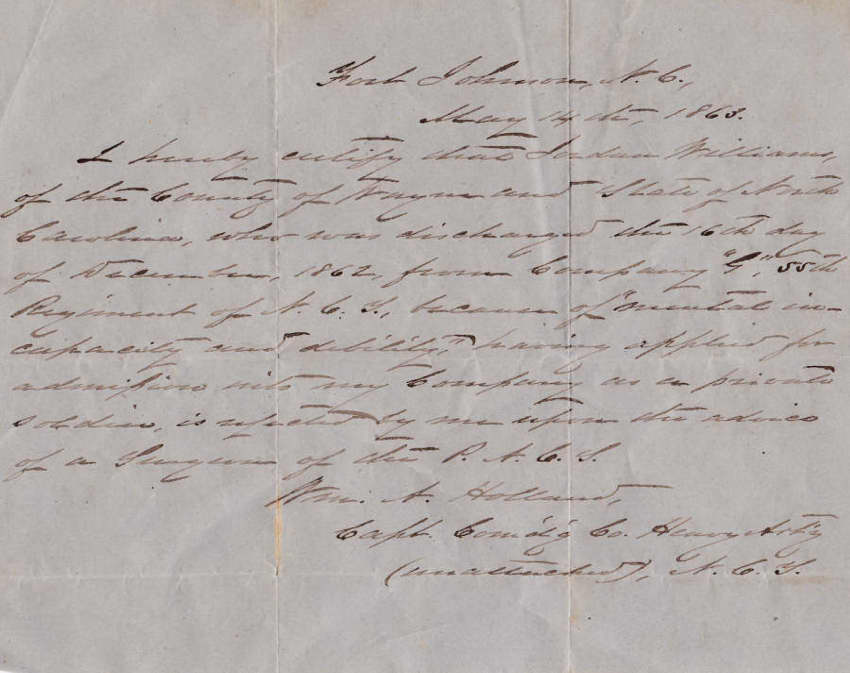 Fort Johnson, N. C.,
May 14th, 1863.
I hereby certify that Jordan Williams,
of the County of Wayne and State of North
Carolina, who was discharged the 16th day
of December, 1862, from Company "G", 55th
Regiment of N. C. T., because of "mental in-
capacity and debility," having applied for
admission into my Company as a private
soldier, is rejected by me upon the advice
of a Surgeon of the P. A. C. S.
Wm. A. Holland,
Capt. Com'd'g Co. Heavy Art'y
(unattached), N. C. T.